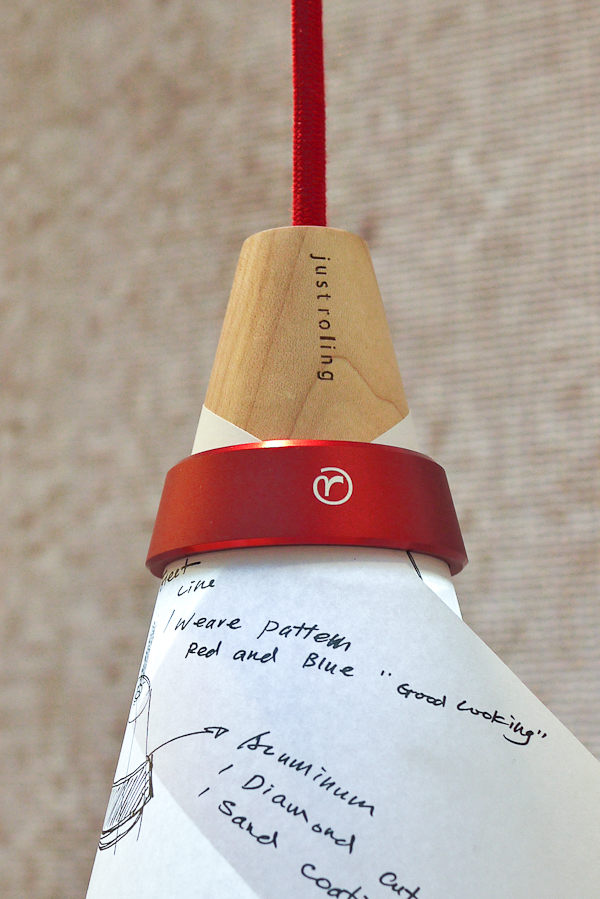 justroling
r
Line
/ Weave pattern
Red and Blue "Good Looking"
Aluminum
/ Diamond Cut
/ Sand Coati